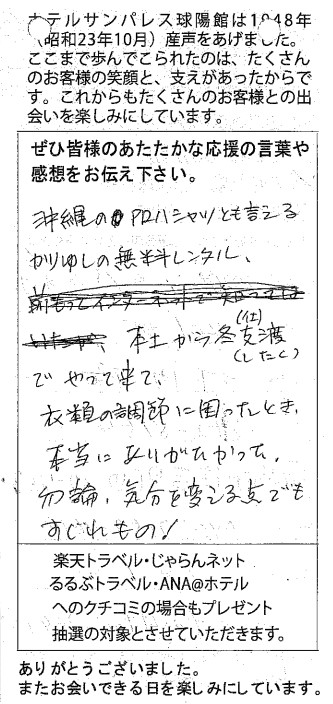 ホテルサンパレス球陽館は1948年
(昭和23年10月)産声をあげました。
ここまで歩んでこられたのは、たくさん
のお客様の笑顔と、支えがあったからで
す。これからもたくさんのお客様との出
会いを楽しみにしています。
ぜひ皆様のあたたかな応援の言葉や
感想をお伝え下さい。
沖縄のアロハシャツとも言える
かりゆしの無料レンタル、
前もってインターネットで知っては
いたが、本土から冬支渡
(仕)
(したく)
でやって来て、
衣類の調節に困ったとき、
本当にありがたかった。
勿論、気分を変える点でも
すぐれもの!
楽天トラベル・じゃらんネット
るるぶトラベル・ANA@ホテル
へのクチコミの場合もプレゼント
抽選の対象とさせていただきます。
ありがとうございました。
またお会いできる日を楽しみにしています。